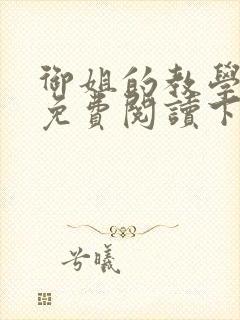 御姐的教學
免費閱讀下
兮曦